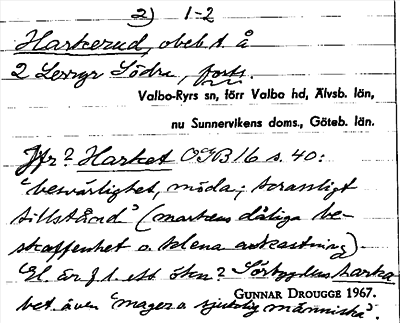 2) 1-2
Harkerud, obeb. t. å
2 Lerryr Södra, forts.
Valbo-Ryrs sn, förr Valbo hd, Älvsb. län,
nu Sunnervikens doms., Göteb. län.
Jfr? Harket OGB 16 s. 40:
"besvärlighet, möda; trassligt
tillstånd" (markens dåliga be-
skaffenhet o. klena avkastning).
El. är f. l. ett ökn? Sörbygdens harka
bet. även "mager o. sjuklig människa".
GUNNAR DROUGGE 1967.